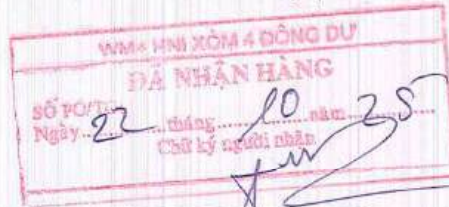 WM+ HNI XÓM 4 ĐÔNG DƯ
ĐÃ NHẬN HÀNG
SỐ PO/T
Ngày 22 tháng 10 năm 25
Chữ ký người nhận